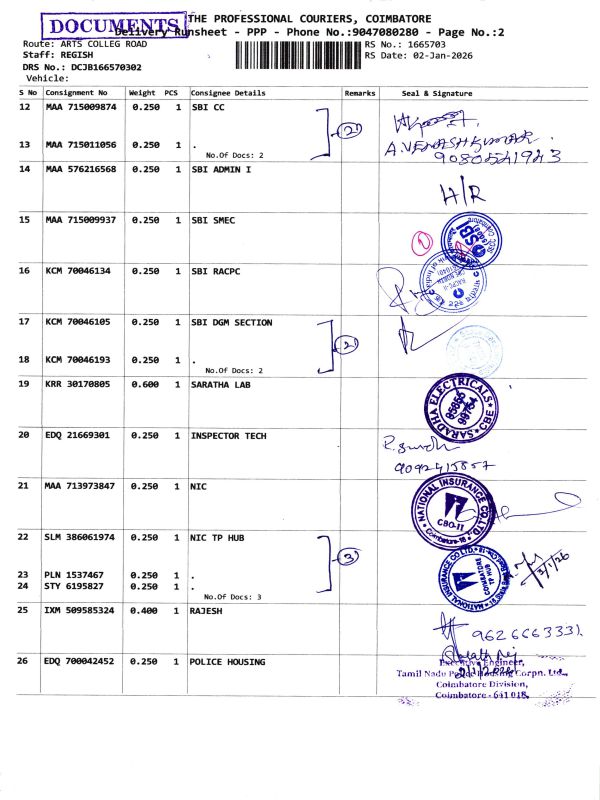 DOCUMENTS
THE PROFESSIONAL COURIERS, COIMBATORE
Delivery Runsheet - PPP - Phone No.:9047080280 - Page No.:2
Route: ARTS COLLEG ROAD
RS No.: 1665703
Staff: REGISH
RS Date: 02-Jan-2026
DRS No.: DCJB166570302
Vehicle:
S No Consignment No Weight PCS Consignee Details Remarks Seal & Signature
12 MAA 715009874 0.250 1 SBI CC
2
13 MAA 715011056 0.250 1 .
A.VENKASHKUMAR
No.Of Docs: 2
9080541943
14 MAA 576216568 0.250 1 SBI ADMIN I
H/R
15 MAA 715009937 0.250 1 SBI SMEC
SBI
16 KCM 70046134 0.250 1 SBI RACPC
17 KCM 70046105 0.250 1 SBI DGM SECTION
2
18 KCM 70046193 0.250 1 .
No.Of Docs: 2
19 KRR 30170805 0.600 1 SARATHA LAB
SARADHA ELECTRICALS CBE
95855
99754
20 EDQ 21669301 0.250 1 INSPECTOR TECH
9092415857
21 MAA 713973847 0.250 1 NIC
NATIONAL INSURANCE CO.LTD.
CBO-II
Coimbatore-18
22 SLM 386061974 0.250 1 NIC TP HUB
3
23 PLN 1537467 0.250 1 .
24 STY 6195827 0.250 1 .
No.Of Docs: 3
NATIONAL INSURANCE CO.LTD.
COIMBATORE
TP HUB
3/1/26
25 IXM 509585324 0.400 1 RAJESH
9626663331
26 EDQ 700042452 0.250 1 POLICE HOUSING
Executive Engineer,
Tamil Nadu Police Housing Corpn. Ltd.,
Coimbatore Division,
Coimbatore - 641 018.